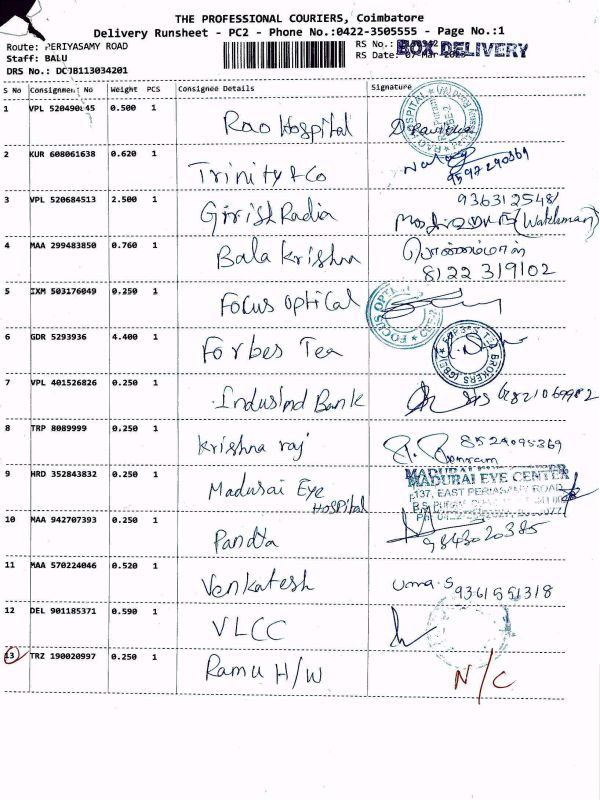 THE PROFESSIONAL COURIERS, Coimbatore
Delivery Runsheet - PC2 - Phone No.:0422-3505555 - Page No.:1
Route: PERIYASAMY ROAD RS No.:
BOX DELIVERY
Staff: BALU RS Date: 07-Mar
DRS No.: DCJB113034201
S No Consignment No Weight PCS Consignee Details Signature
1 VPL 520490645 0.500 1 Rao Hospital
2 KUR 608061638 0.620 1 Trinity & Co
9597290369
3 VPL 520684513 2.500 1 Girish Radia 9363125481
(Watchman)
4 MAA 299483850 0.760 1 Bala Krishna பொன்னம்மாள்
8122 319102
5 IXM 503176049 0.250 1 Focus Optical
6 GDR 5293936 4.400 1 Forbes Tea
TEA BROKERS
7 VPL 401526826 0.250 1 IndusInd Bank
8 TRP 8089999 0.250 1 Krishna raj 8524095369
9 HRD 352843832 0.250 1 Madurai Eye Hospital
MADURAI EYE CENTER
137, EAST PERIASAMY ROAD
10 MAA 942707393 0.250 1 Pandya 9843020385
11 MAA 570224046 0.520 1 Venkatesh Uma.S 9361551318
12 DEL 901185371 0.590 1 VLCC
13 TRZ 190020997 0.250 1 Ramu H/W N/C